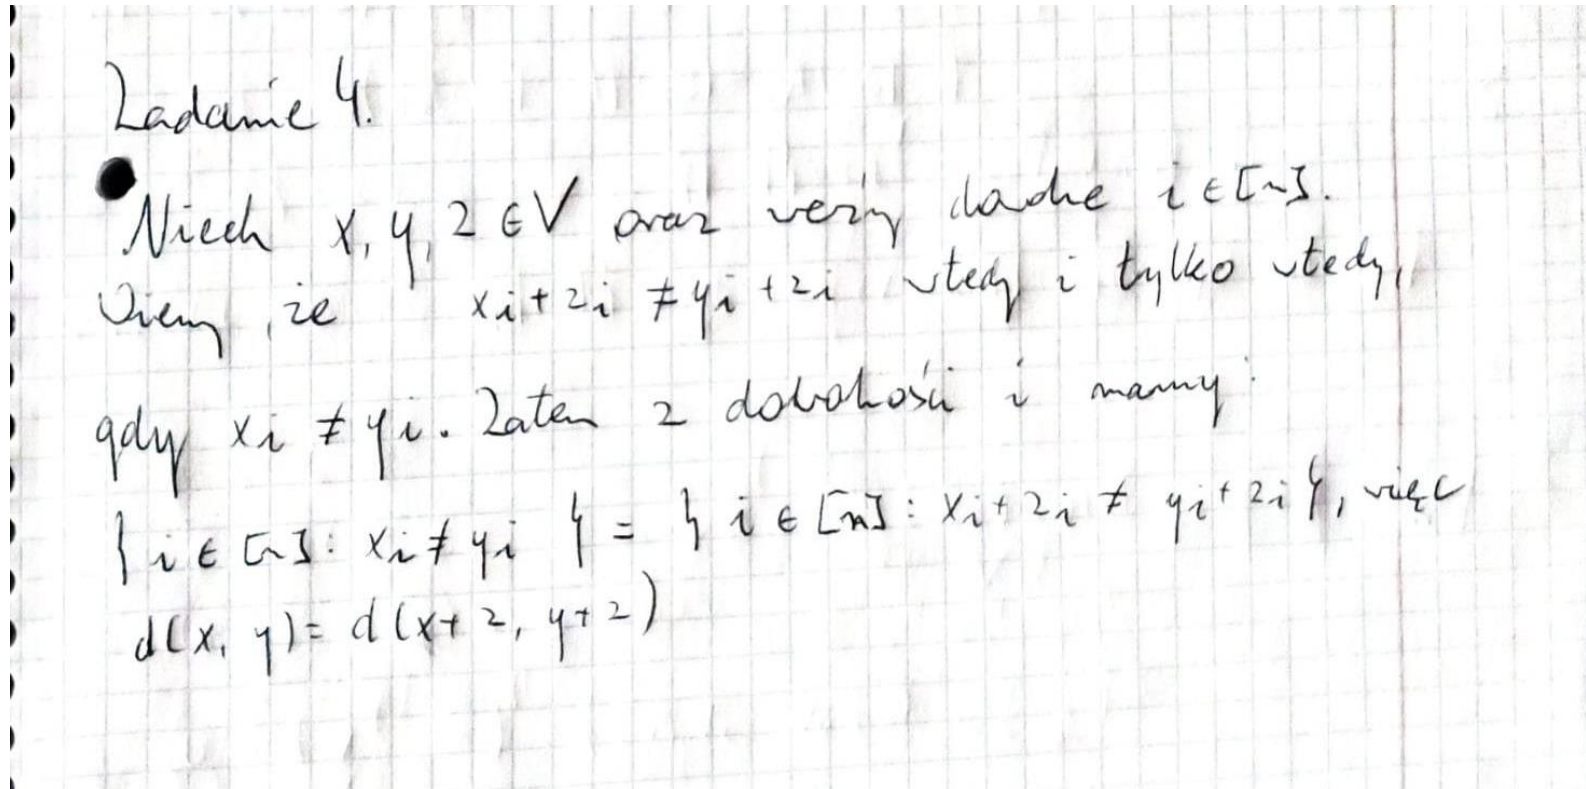 Zadanie 4.
Niech x, y, z ∈ V oraz weźmy dowolne i ∈ [n].
Wiemy, że xi + zi ≠ yi + zi wtedy i tylko wtedy,
gdy xi ≠ yi. Zatem z dowolności i mamy:
{ i ∈ [n] : xi ≠ yi } = { i ∈ [n] : xi + zi ≠ yi + zi }, więc
d(x, y) = d(x + z, y + z)